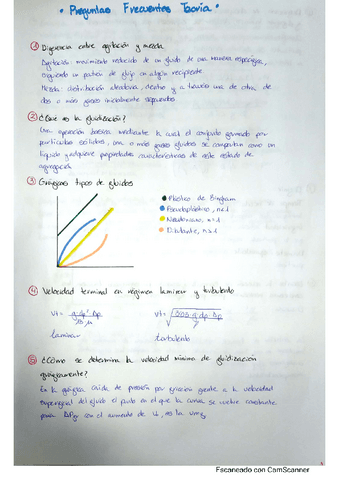 • Preguntas Frecuentes Teoría •
① Diferencia entre agitación y mezcla
Agitación: movimiento reducido de un fluido de una manera específica,
siguiendo un patrón de flujo en algún recipiente.
Mezcla: distribución aleatoria, dentro y a través una de otra, de
dos o más fases inicialmente separadas.
② ¿Qué es la fluidización?
Una operación básica mediante la cual el conjunto formado por
partículas sólidas, con o más fluidos se comportan como un
líquido y adquiere propiedades características de este estado de
agregación.
③ Gráficas tipos de fluidos
• Plástico de Bingham
• Pseudoplástico, n<1
• Newtoniano, n=1
• Dilatante, n>1
④ Velocidad terminal en régimen laminar y turbulento
laminar
turbulento
⑤ ¿Cómo se determina la velocidad mínima de fluidización
gráficamente?
En la gráfica caída de presión por fricción frente a la velocidad
superficial del fluido el punto en el que la curva se vuelve constante
para con el aumento de u, es la
Facaneado con CamScanner